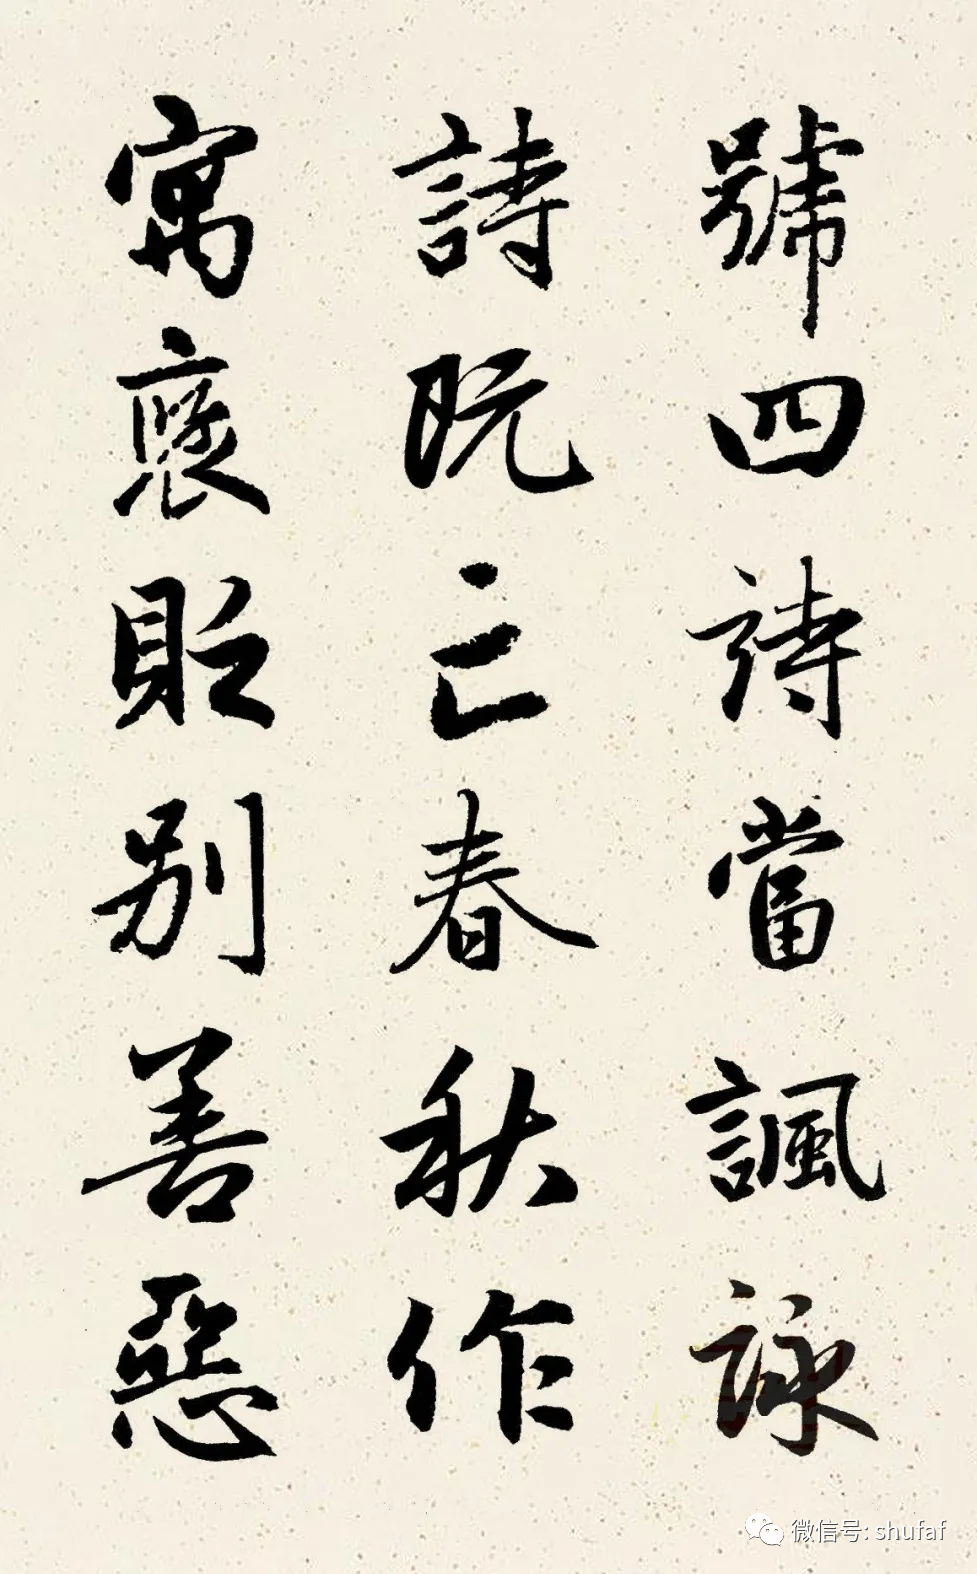 號四詩當諷詠
詩既亡春秋作
寓褒貶别善惡
微信号: shufaf